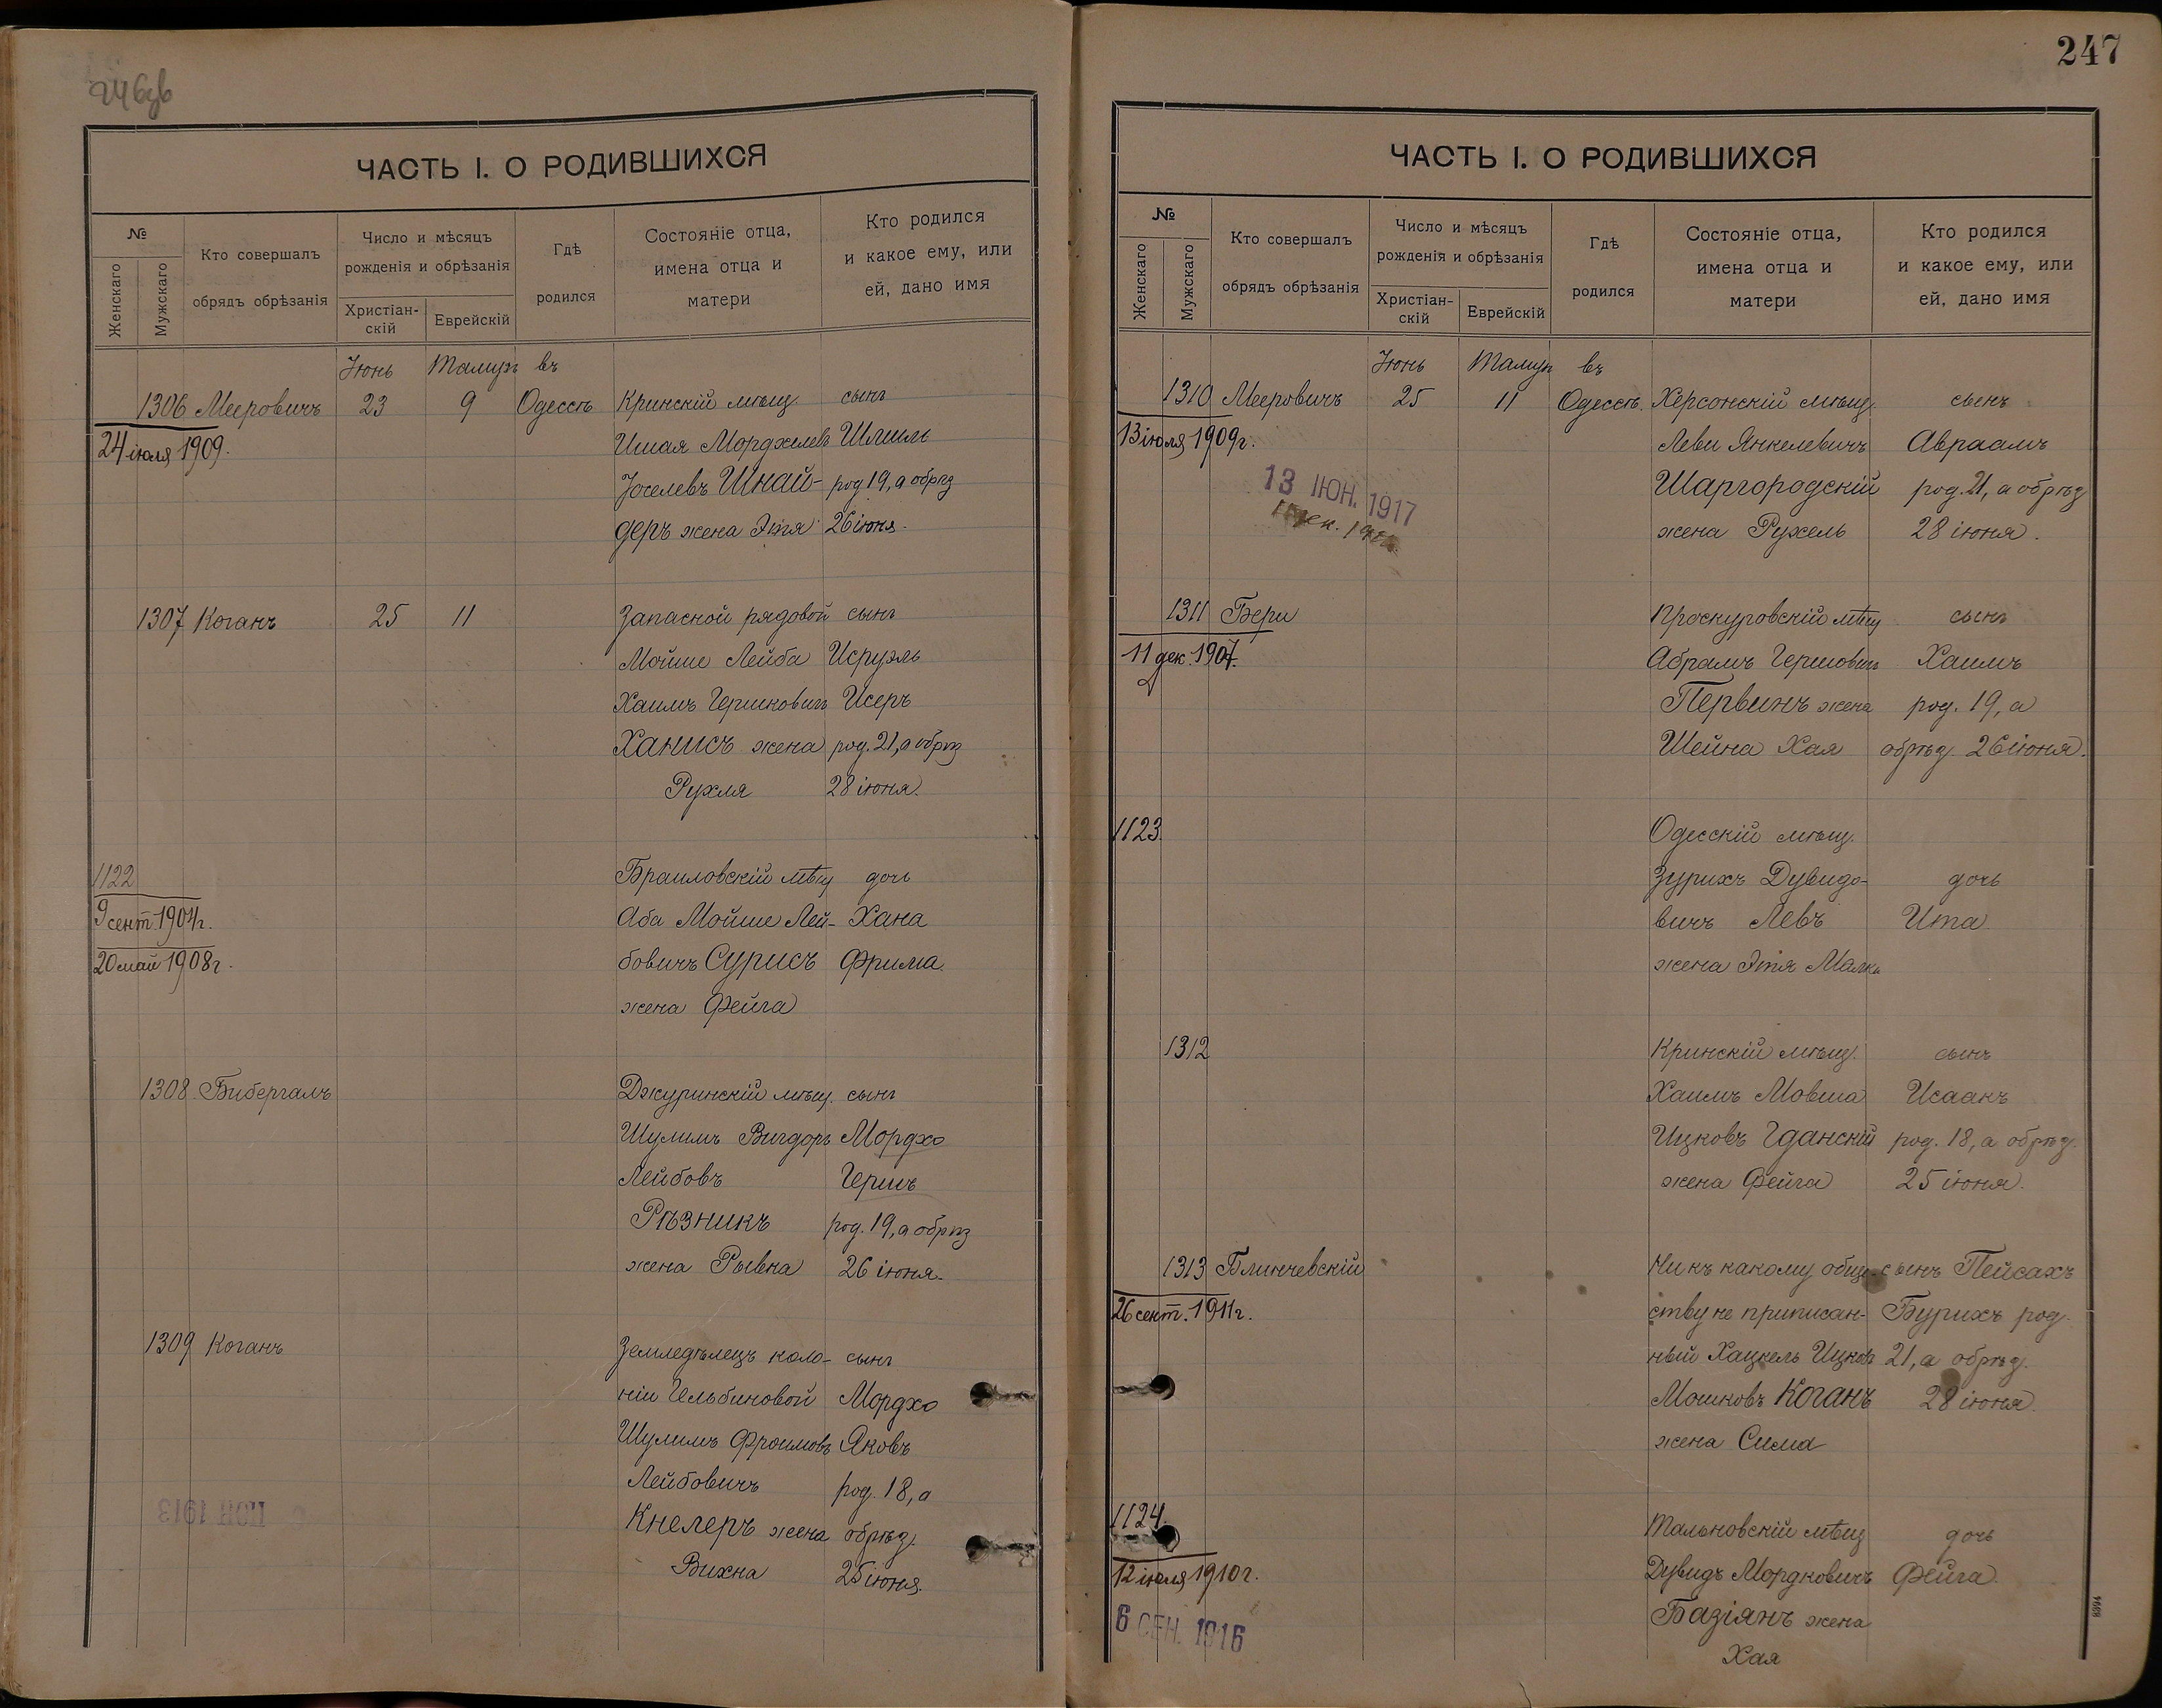 ЧАСТЬ I. О РОДИВШИХСЯ
№
Женскаго
Мужскаго
Кто совершалъ
обрядъ обрѣзанія
Число и мѣсяцъ
рожденія и обрѣзанія
Христіан-
скій
Еврейскій
Гдѣ
родился
Состояніе отца,
имена отца и
матери
Кто родился
и какое ему, или
ей, дано имя
Іюнь Тамузъ въ
1306 Мееровичъ 23 9 Одессѣ Кринскій мѣщ. сынъ
24 іюля 1909. Ишая Мордхелевъ Шмиль
Іоселевъ Шнай- род 19, а обрѣз
деръ жена Этя 26 іюня.
1307 Коганъ 25 11 Запасной рядовой сынъ
Мойше Лейба Исруэль
Хаимъ Гершковичъ Исеръ
Ханисъ жена род. 21, а обрѣз
Рухля 28 іюня.
1122 Браиловскій мѣщ дочь
9 сент. 1904г. Аба Мойше Лей- Хана
20 май 1908г. бовичъ Сурисъ Фрима
жена Фейга
1308 Бибергалъ Джуринскій мѣщ. сынъ
Шулимъ Вигдоръ Мордхо
Лейбовъ Гершъ
Рѣзникъ род. 19, а обрѣз
жена Рывка 26 іюня.
1309 Коганъ Земледѣлецъ коло- сынъ
ніи Ильбиновой Мордхо
Шулимъ Фроимовъ Яковъ
Лейбовичъ род. 18, а
Кнелеръ жена обрѣз.
Вихна 25 іюня.
247
ЧАСТЬ I. О РОДИВШИХСЯ
№
Женскаго
Мужскаго
Кто совершалъ
обрядъ обрѣзанія
Число и мѣсяцъ
рожденія и обрѣзанія
Христіан-
скій
Еврейскій
Гдѣ
родился
Состояніе отца,
имена отца и
матери
Кто родился
и какое ему, или
ей, дано имя
Іюнь Тамуз въ
1310 Мееровичъ 25 11 Одессѣ. Херсонскій мѣщ. сынъ
13 іюля 1909г. Леви Янкелевичъ Авраамъ
13 ІЮН. 1917 Шаргородскій род. 21, а обрѣз
жена Рухель 28 іюня.
1311 Бери Проскуровскій мѣщ сынъ
11 дек. 1907. Абрамъ Гершовичъ Хаимъ
Первинъ жена род. 19, а
Шейна Хая обрѣз. 26 іюня.
1123 Одесскій мѣщ.
Зурихъ Дувидо- дочь
вичъ Левъ Ита
жена Этя Малка
1312 Кринскій мѣщ. сынъ
Хаимъ Мовша Исаакъ
Ицковъ Гданскій род. 18, а обрѣз.
жена Фейга 25 іюня.
1313 Блинчевскій Ни къ какому обще- сынъ Пейсахъ
26 сент. 1911г. ству не приписан- Бурихъ род.
ный Хацкель Ицковъ 21, а обрѣз.
Мошковъ Коганъ 28 іюня.
жена Сима
1124. Тальновскій мѣщ дочь
12 іюля 1910г. Дувидъ Мордковичъ Фейга.
6 СЕН. 1916 Базіянъ жена
Хая
8394